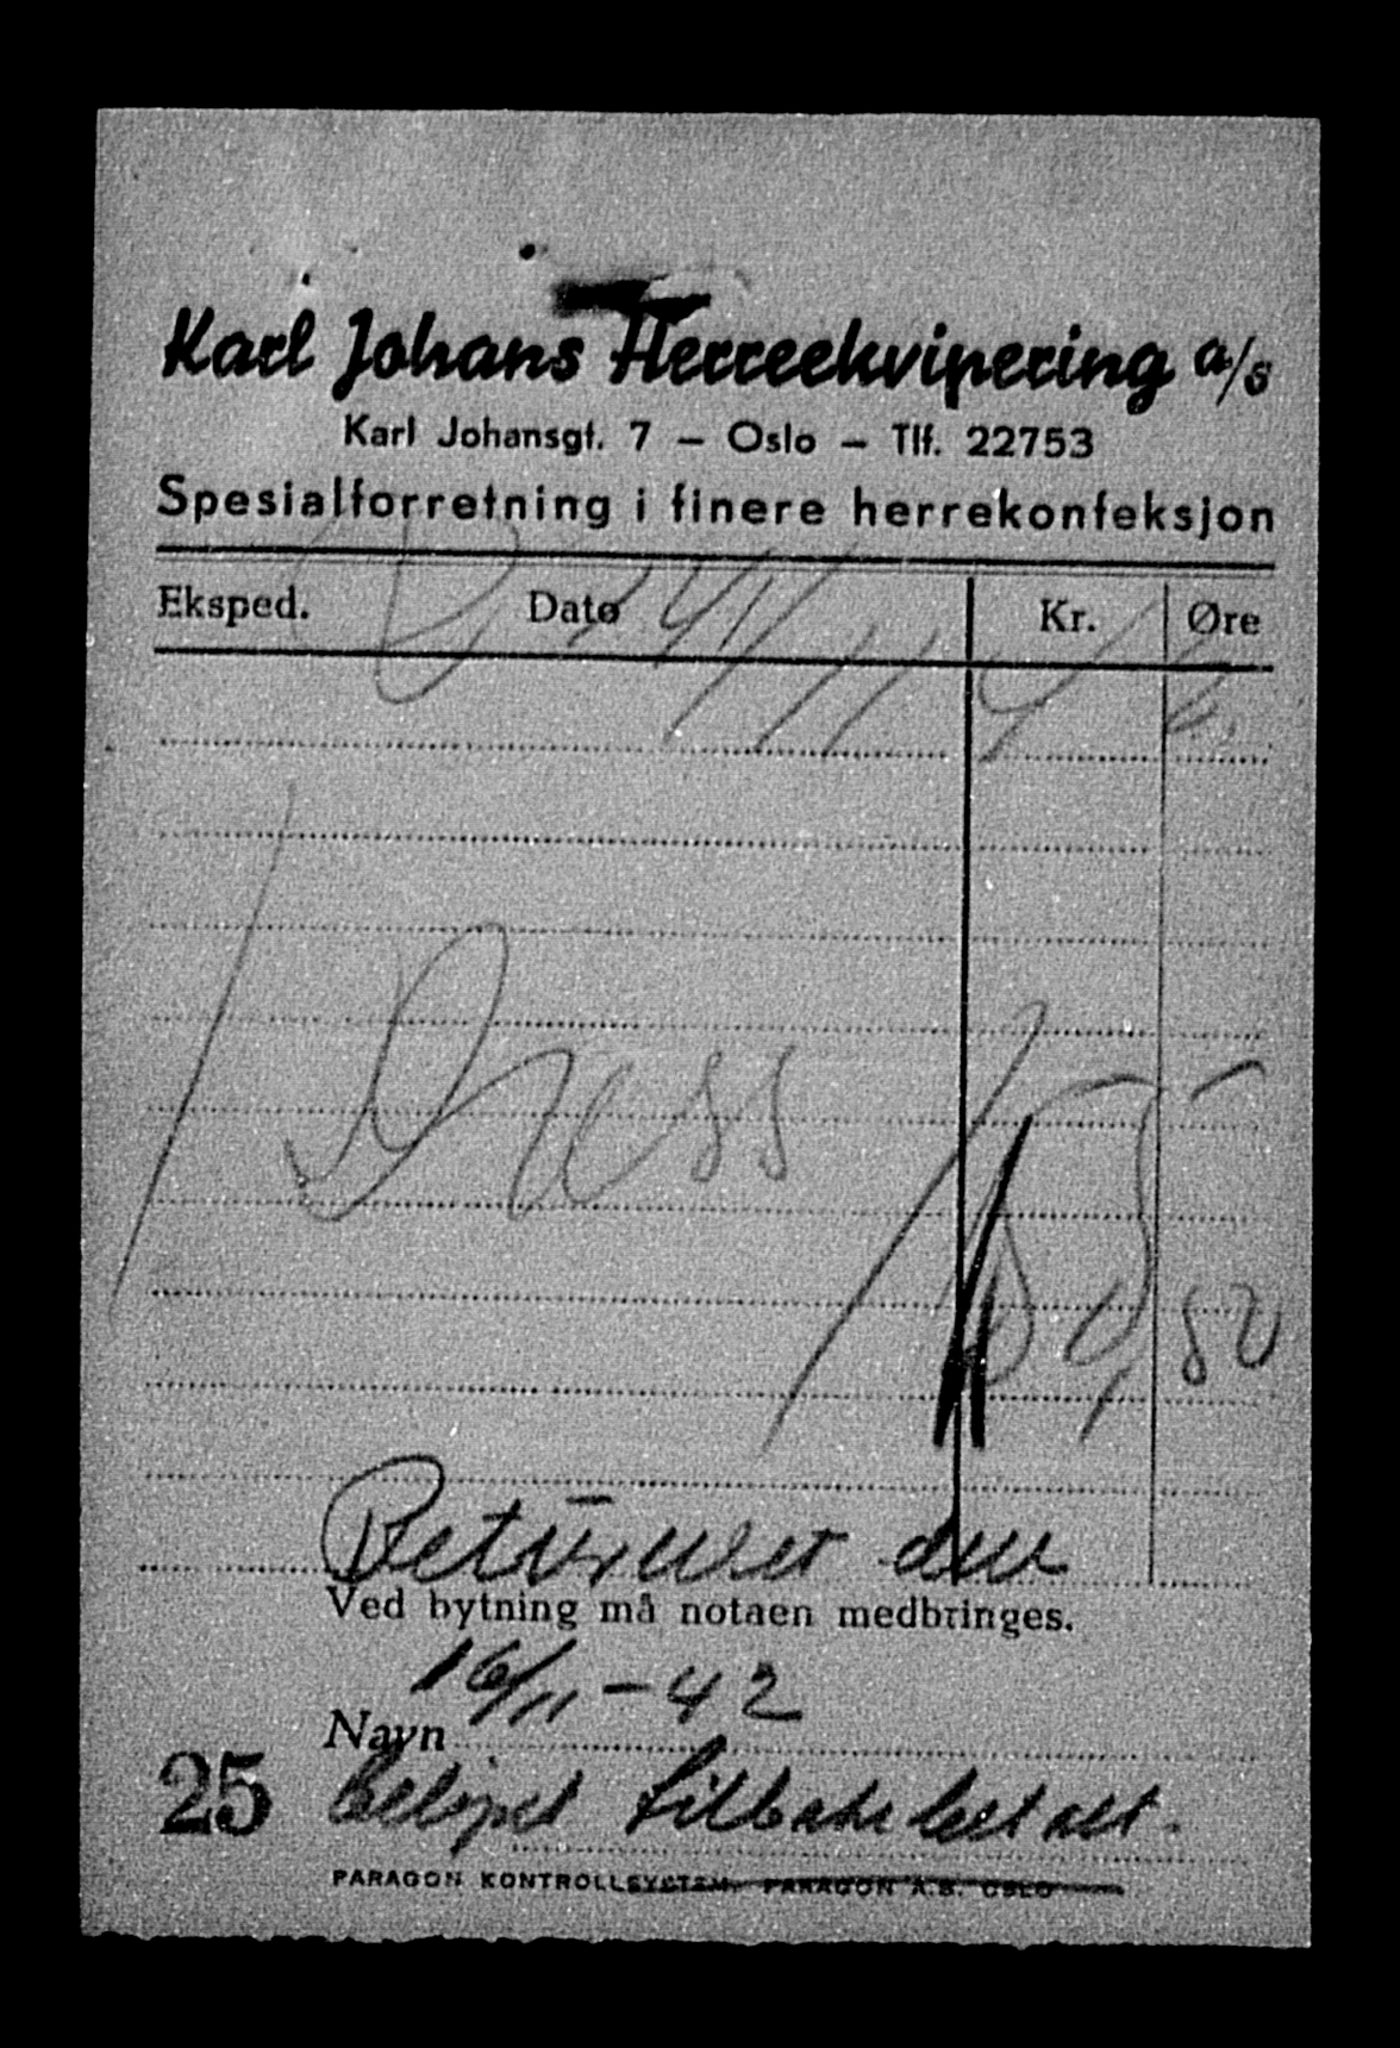 Karl Johans Herreekvipering a/s
Karl Johansgt. 7 – Oslo – Tlf. 22753
Spesialforretning i finere herrekonfeksjon
Eksped. Dato Kr. Øre
1 Dress
80
Returnert den
Ved bytning må notaen medbringes.
16/11-42
Navn
25 Beløpet tilbakebetalt.
PARAGON KONTROLLSYSTEM, PARAGON A.S. OSLO